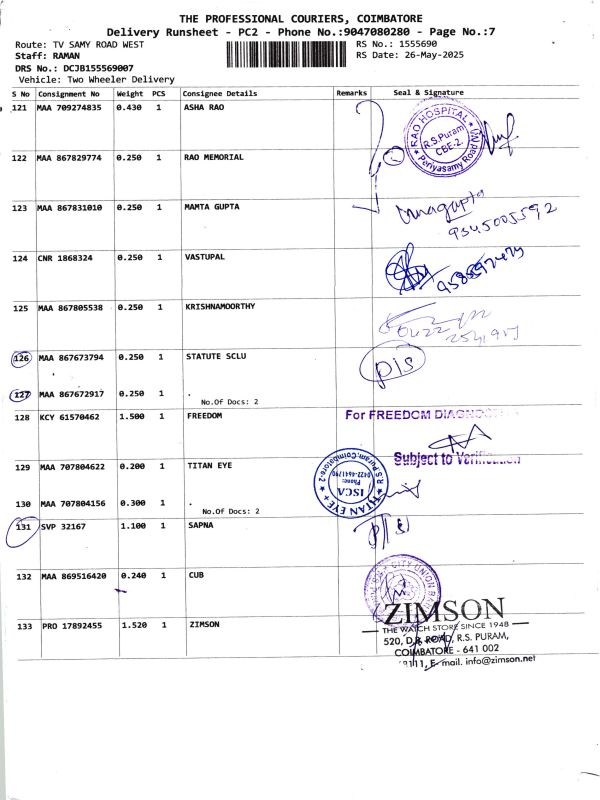 THE PROFESSIONAL COURIERS, COIMBATORE
Delivery Runsheet - PC2 - Phone No.:9047080280 - Page No.:7
Route: TV SAMY ROAD WEST
RS No.: 1555690
Staff: RAMAN
RS Date: 26-May-2025
DRS No.: DCJB155569007
Vehicle: Two Wheeler Delivery
S No Consignment No Weight PCS Consignee Details Remarks Seal & Signature
121 MAA 709274835 0.430 1 ASHA RAO
RAO HOSPITAL
R.S.Puram
CBE-2.
Periyasamy Road
122 MAA 867829774 0.250 1 RAO MEMORIAL
123 MAA 867831010 0.250 1 MAMTA GUPTA
9345005592
124 CNR 1868324 0.250 1 VASTUPAL
125 MAA 867805538 0.250 1 KRISHNAMOORTHY
126 MAA 867673794 0.250 1 STATUTE SCLU
pis
127 MAA 867672917 0.250 1 .
No.Of Docs: 2
128 KCY 61570462 1.500 1 FREEDOM
For FREEDOM
Subject to
129 MAA 707804622 0.200 1 TITAN EYE
TITAN EYE+
R.S Puram, Coimbatore-2
Phone:
ISCA
130 MAA 707804156 0.300 1 .
No.Of Docs: 2
131 SVP 32167 1.100 1 SAPNA
132 MAA 869516420 0.240 1 CUB
CITY UNION
133 PRO 17892455 1.520 1 ZIMSON
ZIMSON
THE WATCH STORE SINCE 1948
520, D.B. ROAD, R.S. PURAM,
COIMBATORE - 641 002
E-mail. info@zimson.net